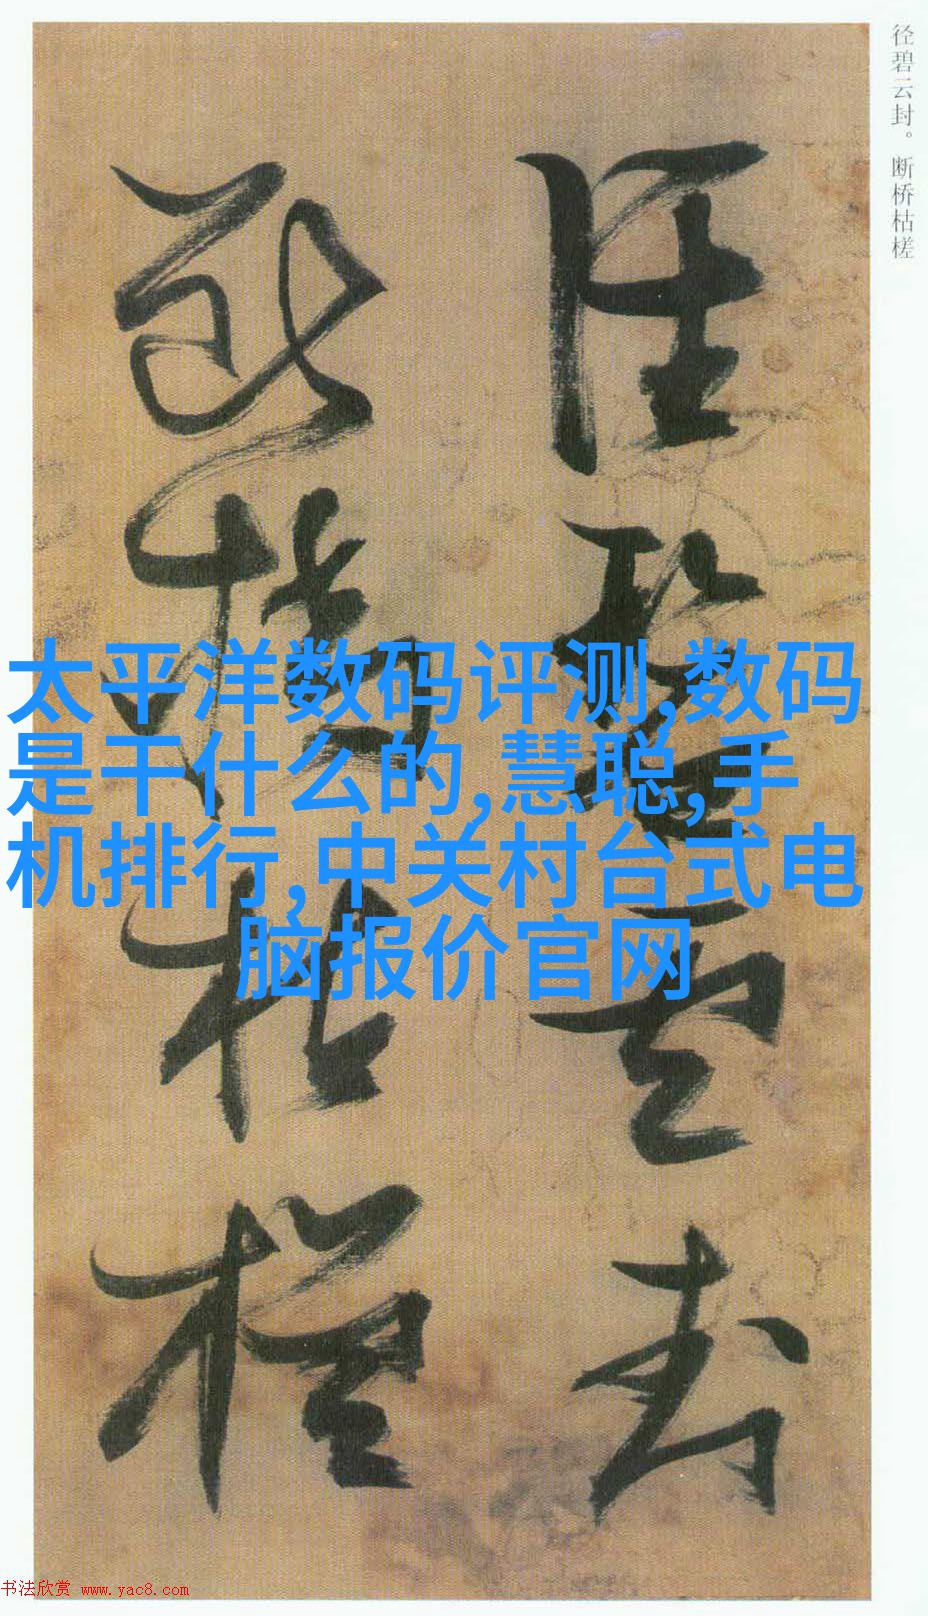 径碧云封。断桥枯槎
径碧云封
断桥枯槎
太平洋数码评测,数码
是干什么的,慧聪,手
机排行,中关村台式电
脑报价官网
书法欣赏 www.yac8.com